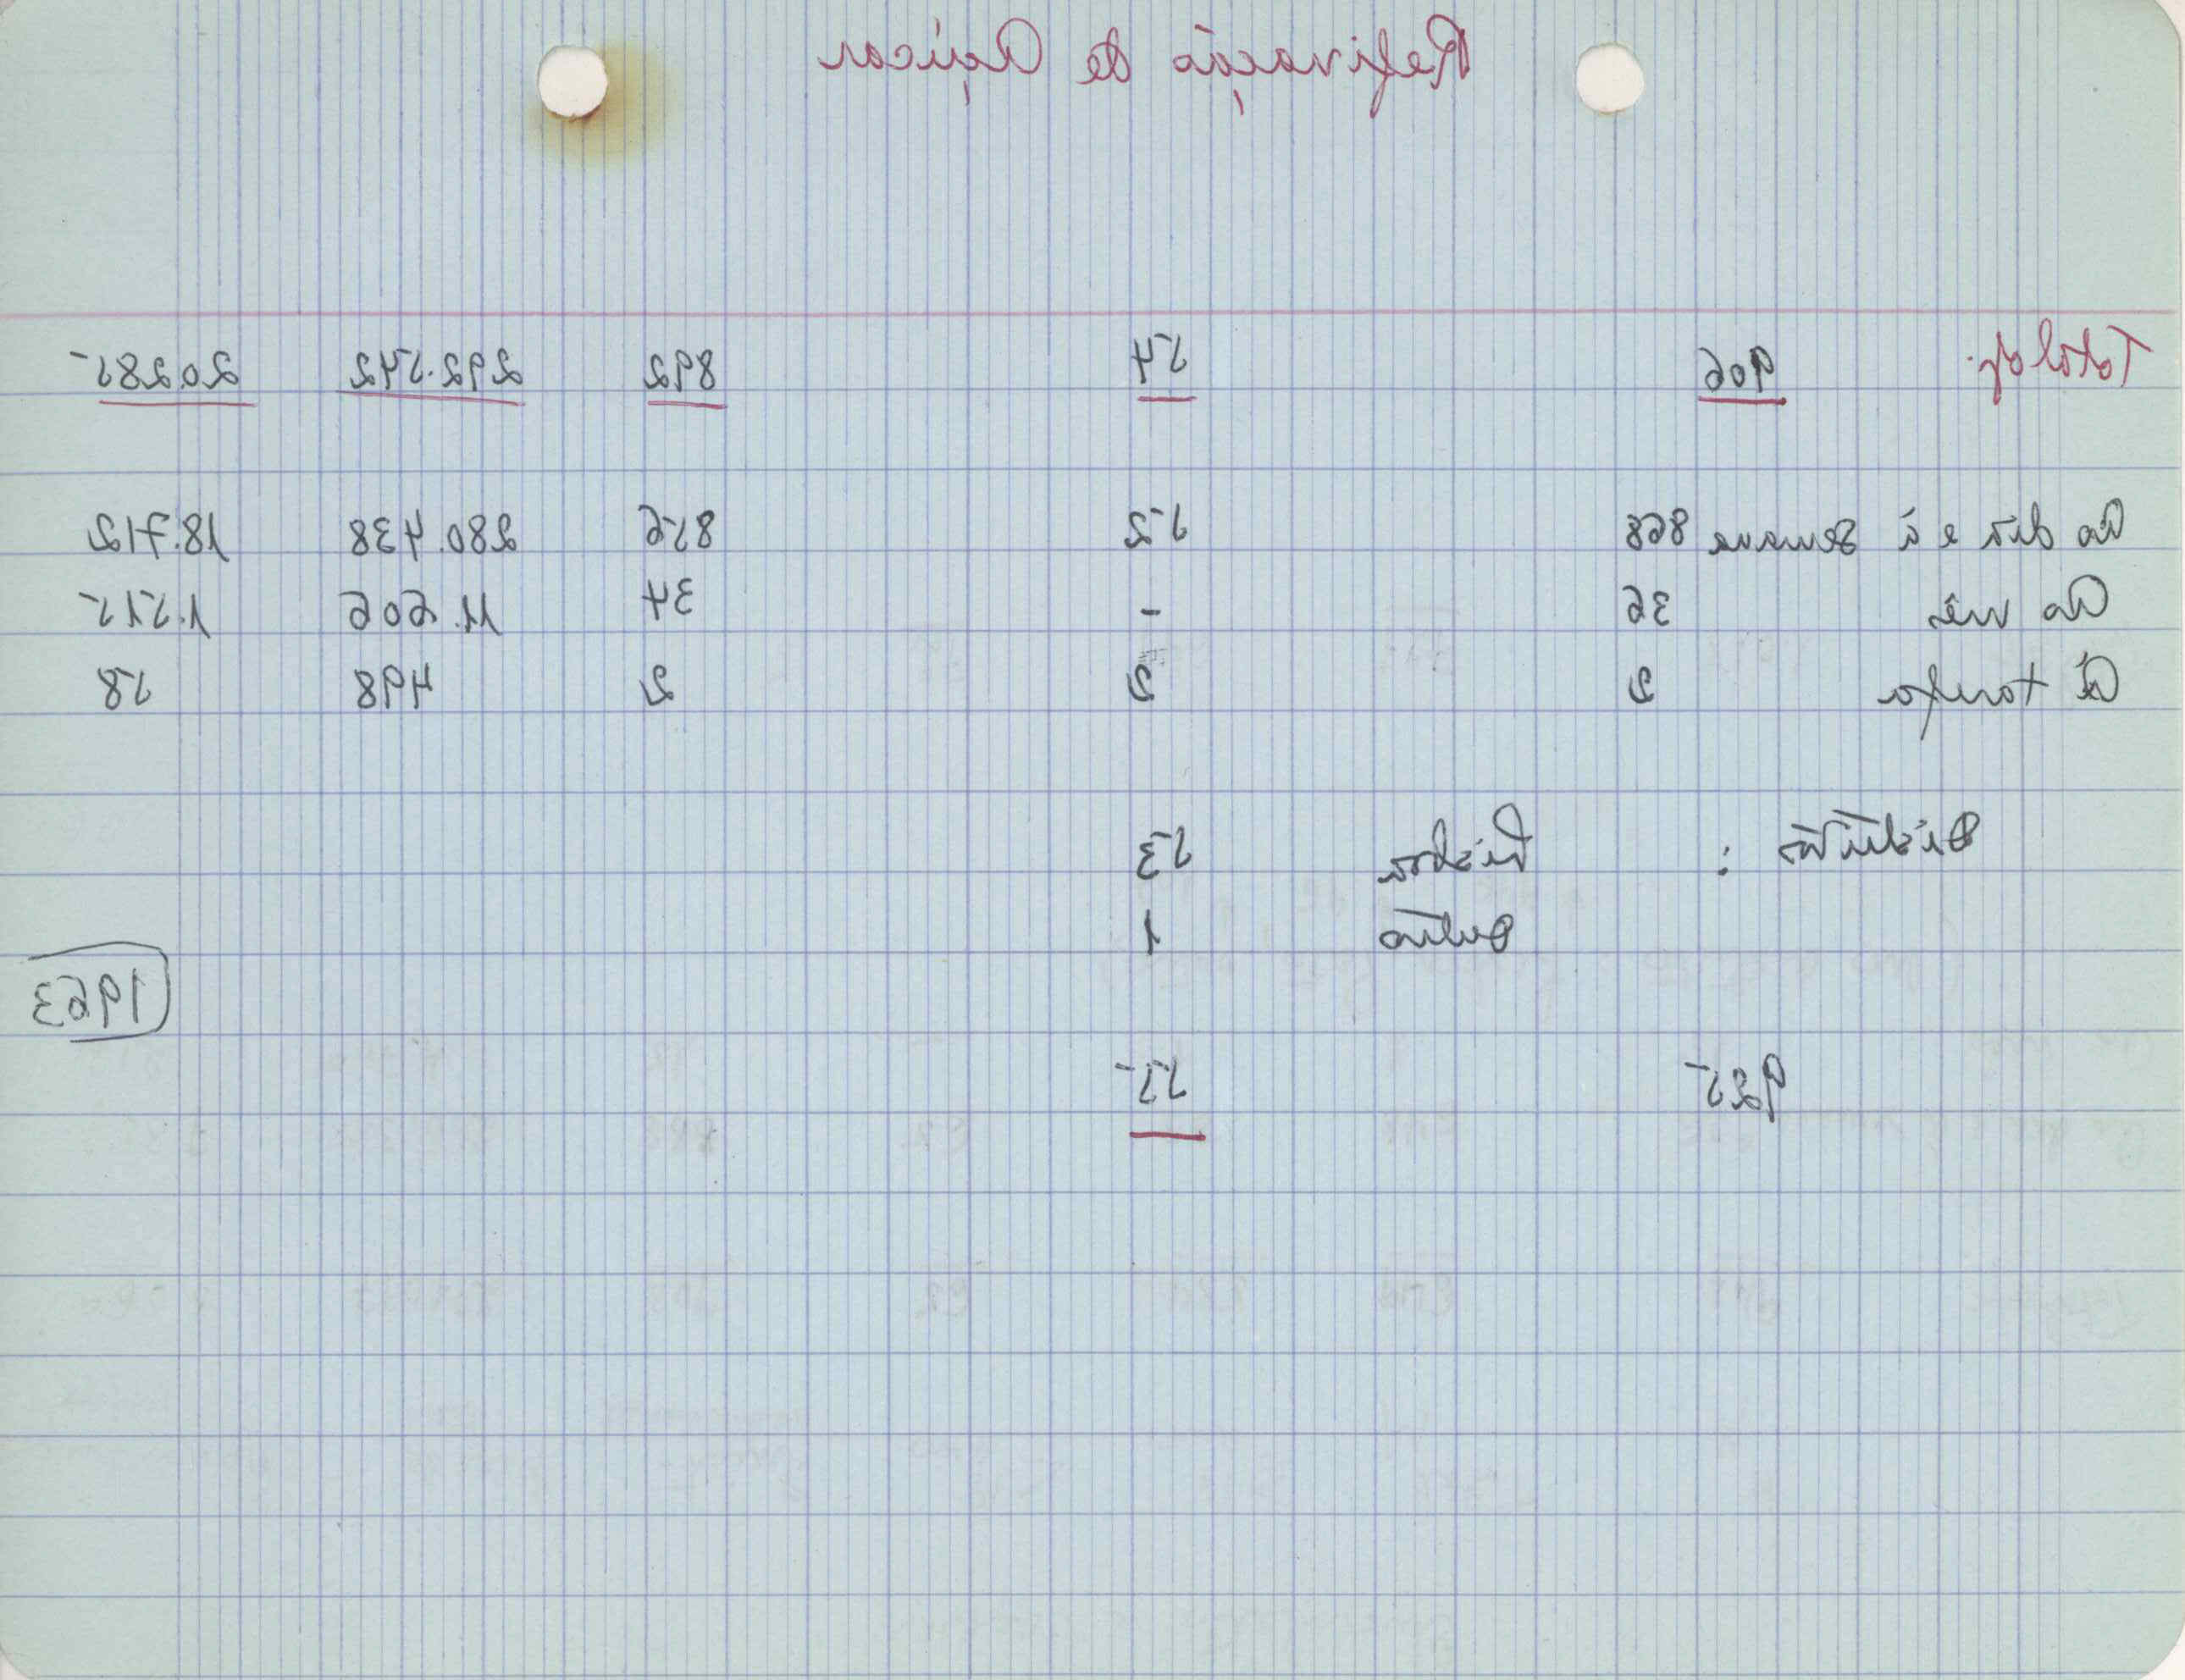 Refinação de Açúcar
Totais 906 54 892 292.542 20.285
Ao dia e à semana 868 52 856 280.438 18.712
Ao mês 36 - 34 11.606 1.515
À tarefa 2 2 2 498 58
Distritos : Lisboa 53
1
1963
925 55